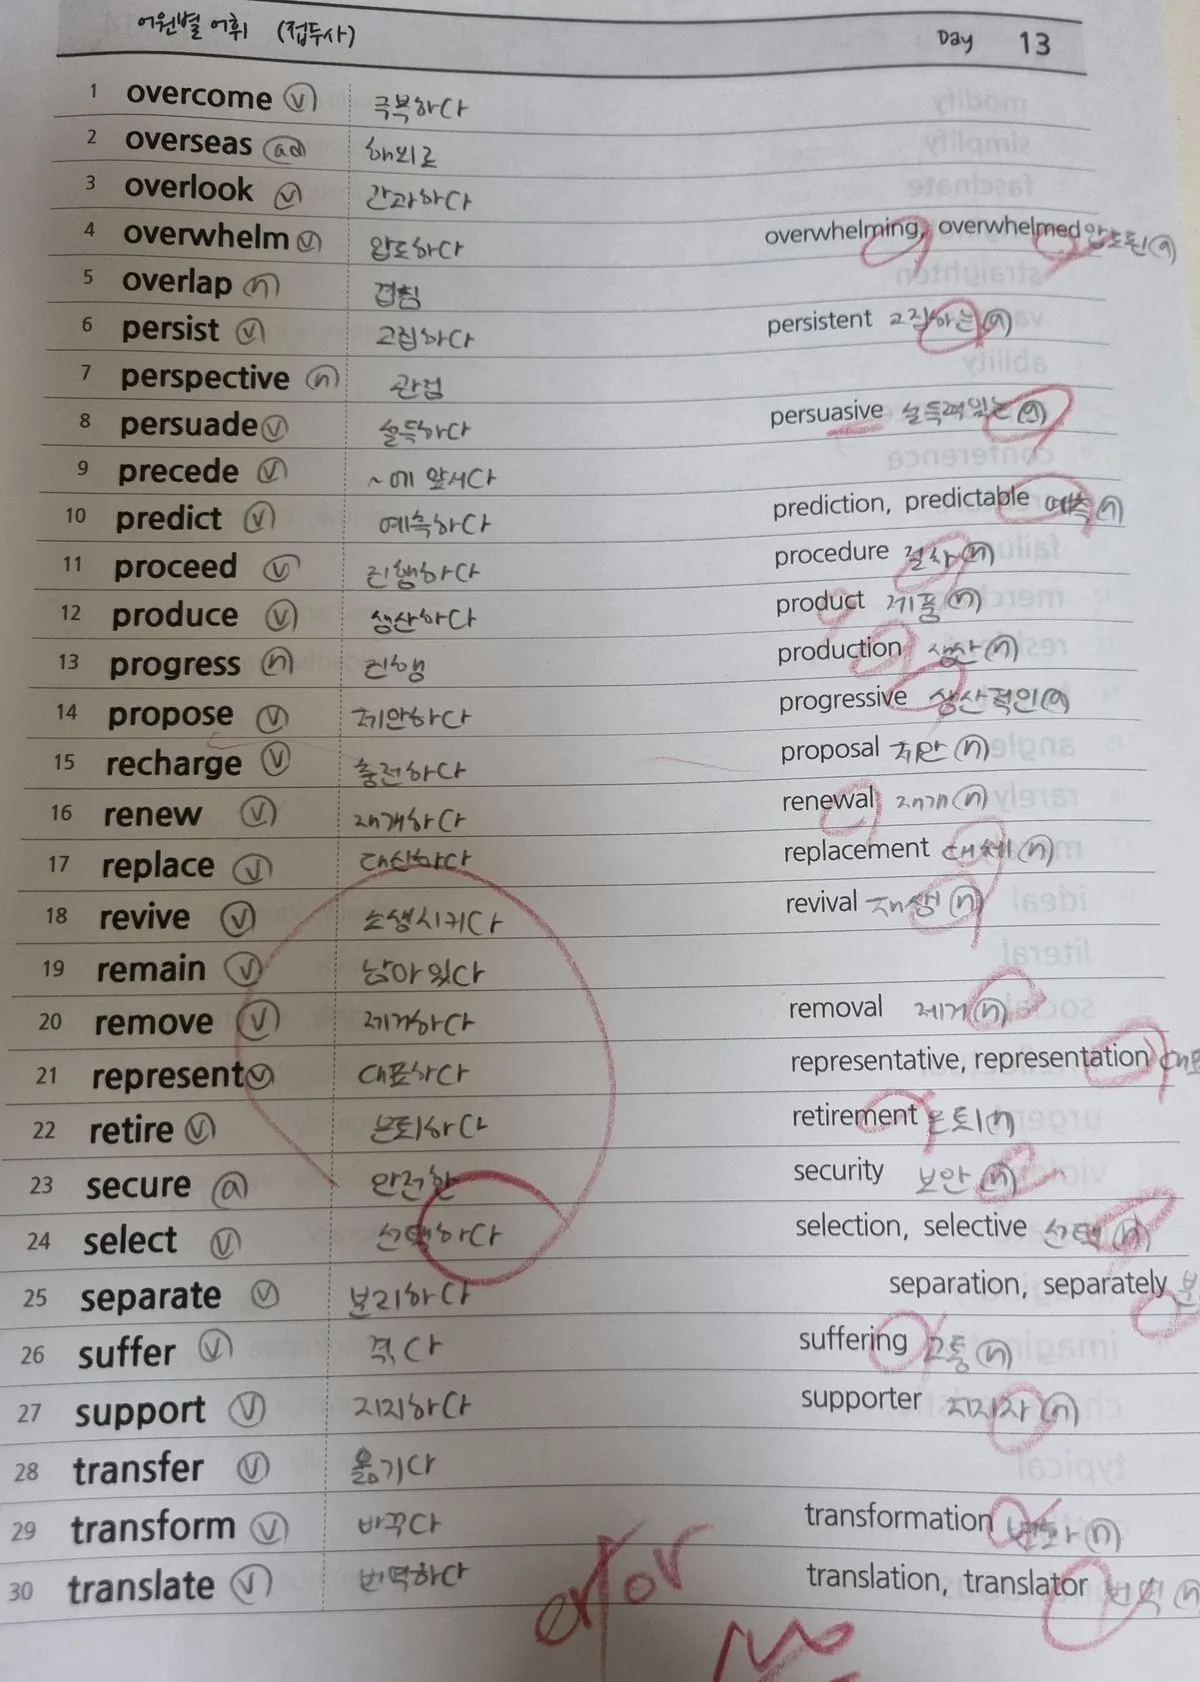 어원별 어휘 (접두사) Day 13
1 overcome ⓥ 극복하다
2 overseas ad 해외로
3 overlook ⓥ 간과하다
4 overwhelm ⓥ 압도하다 overwhelming, overwhelmed 압도된 ⓐ
5 overlap ⓝ 겹침
6 persist ⓥ 고집하다 persistent 고집하는 ⓐ
7 perspective ⓝ 관점
8 persuade ⓥ 설득하다 persuasive 설득력있는 ⓐ
9 precede ⓥ ~에 앞서다
10 predict ⓥ 예측하다 prediction, predictable 예측 ⓝ
11 proceed ⓥ 진행하다 procedure 절차 ⓝ
12 produce ⓥ 생산하다 product 제품 ⓝ
13 progress ⓝ 진행 production 생산 ⓝ
14 propose ⓥ 제안하다 progressive 생산적인 ⓐ
15 recharge ⓥ 충전하다 proposal 제안 ⓝ
16 renew ⓥ 재개하다 renewal 재개 ⓝ
17 replace ⓥ 대신하다 replacement 대체 ⓝ
18 revive ⓥ 소생시키다 revival 재생 ⓝ
19 remain ⓥ 남아있다
20 remove ⓥ 제거하다 removal 제거 ⓝ
21 represent ⓥ 대표하다 representative, representation
22 retire ⓥ 은퇴하다 retirement 은퇴 ⓝ
23 secure ⓐ 안전한 security 보안 ⓝ
24 select ⓥ 선택하다 selection, selective 선택 ⓝ
25 separate ⓥ 분리하다 separation, separately
26 suffer ⓥ 겪다 suffering 고통 ⓝ
27 support ⓥ 지지하다 supporter 지지자 ⓝ
28 transfer ⓥ 옮기다
29 transform ⓥ 바꾸다 transformation 변화 ⓝ
30 translate ⓥ 번역하다 translation, translator 번역 ⓝ